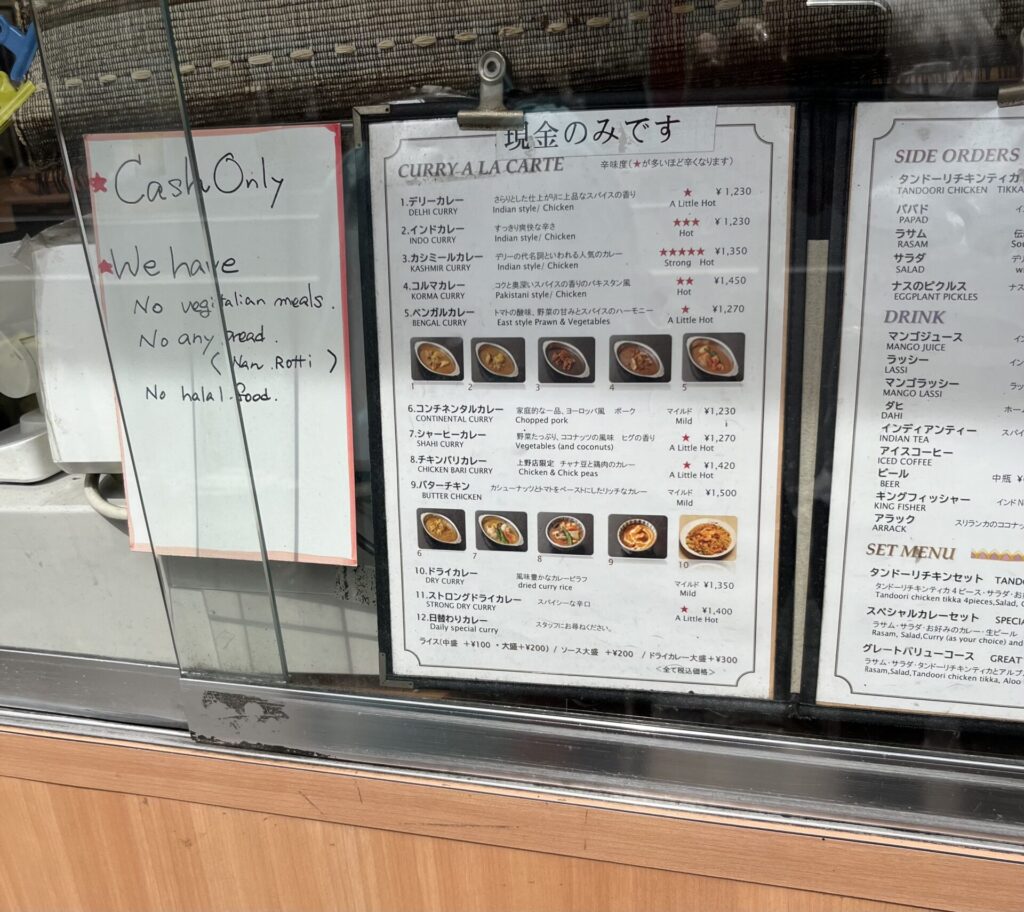 ★ Cash Only
★ We have
No vegitalian meals.
No any bread.
( Nan . Rotti )
No halal food.
現金のみです
CURRY A LA CARTE
辛味度(★が多いほど辛くなります)
1.デリーカレー さらりとした仕上がりに上品なスパイスの香り ★ ¥1,230
DELHI CURRY Indian style/ Chicken A Little Hot
2.インドカレー すっきり爽快な辛さ ★★★ ¥1,230
INDO CURRY Indian style/ Chicken Hot
3.カシミールカレー デリーの代名詞といわれる人気のカレー ★★★★★ ¥1,350
KASHMIR CURRY Indian style/ Chicken Strong Hot
4.コルマカレー コクと奥深いスパイスの香りのパキスタン風 ★★ ¥1,450
KORMA CURRY Pakistani style/ Chicken Hot
5.ベンガルカレー トマトの酸味、野菜の甘みとスパイスのハーモニー ★ ¥1,270
BENGAL CURRY East style Prawn & Vegetables A Little Hot
1 2 3 4 5
6.コンチネンタルカレー 家庭的な一品、ヨーロッパ風 ポーク マイルド ¥1,230
CONTINENTAL CURRY Chopped pork Mild
7.シャーヒーカレー 野菜たっぷり、ココナッツの風味 ヒグの香り ★ ¥1,270
SHAHI CURRY Vegetables (and coconuts) A Little Hot
8.チキンバリカレー 上野店限定 チャナ豆と鶏肉のカレー ★ ¥1,420
CHICKEN BARI CURRY Chicken & Chick peas A Little Hot
9.バターチキン カシューナッツとトマトをペーストにしたリッチなカレー マイルド ¥1,500
BUTTER CHICKEN Mild
6 7 8 9 10
10.ドライカレー 風味豊かなカレーピラフ マイルド ¥1,350
DRY CURRY dried curry rice Mild
11.ストロングドライカレー スパイシーな辛口 ★ ¥1,400
STRONG DRY CURRY A Little Hot
12.日替わりカレー スタッフにお尋ねください。
Daily special curry
ライス(中盛 +¥100 ・大盛+¥200) / ソース大盛 +¥200 / ドライカレー大盛+¥300
<全て税込価格>
SIDE ORDERS
タンドーリチキンティカ
TANDOORI CHICKEN TIKKA
パパド
PAPAD
ラサム
RASAM
サラダ
SALAD
ナスのピクルス
EGGPLANT PICKLES
DRINK
マンゴジュース
MANGO JUICE
ラッシー
LASSI
マンゴラッシー
MANGO LASSI
ダヒ
DAHI
インディアンティー
INDIAN TEA
アイスコーヒー
ICED COFFEE
ビール 中瓶
BEER
キングフィッシャー
KING FISHER
アラック スリランカのココナッ
ARRACK
SET MENU
タンドーリチキンセット
タンドーリチキンティカ4ピース・サラダ・
Tandoori chicken tikka 4pieces,Salad,
スペシャルカレーセット
ラサム・サラダ・お好みのカレー・生ビール
Rasam, Salad,Curry (as your choice) and
グレートバリューコース GREAT
ラサム・サラダ・タンドーリチキンティカとアルブ
Rasam,Salad,Tandoori chicken tikka, Aloo